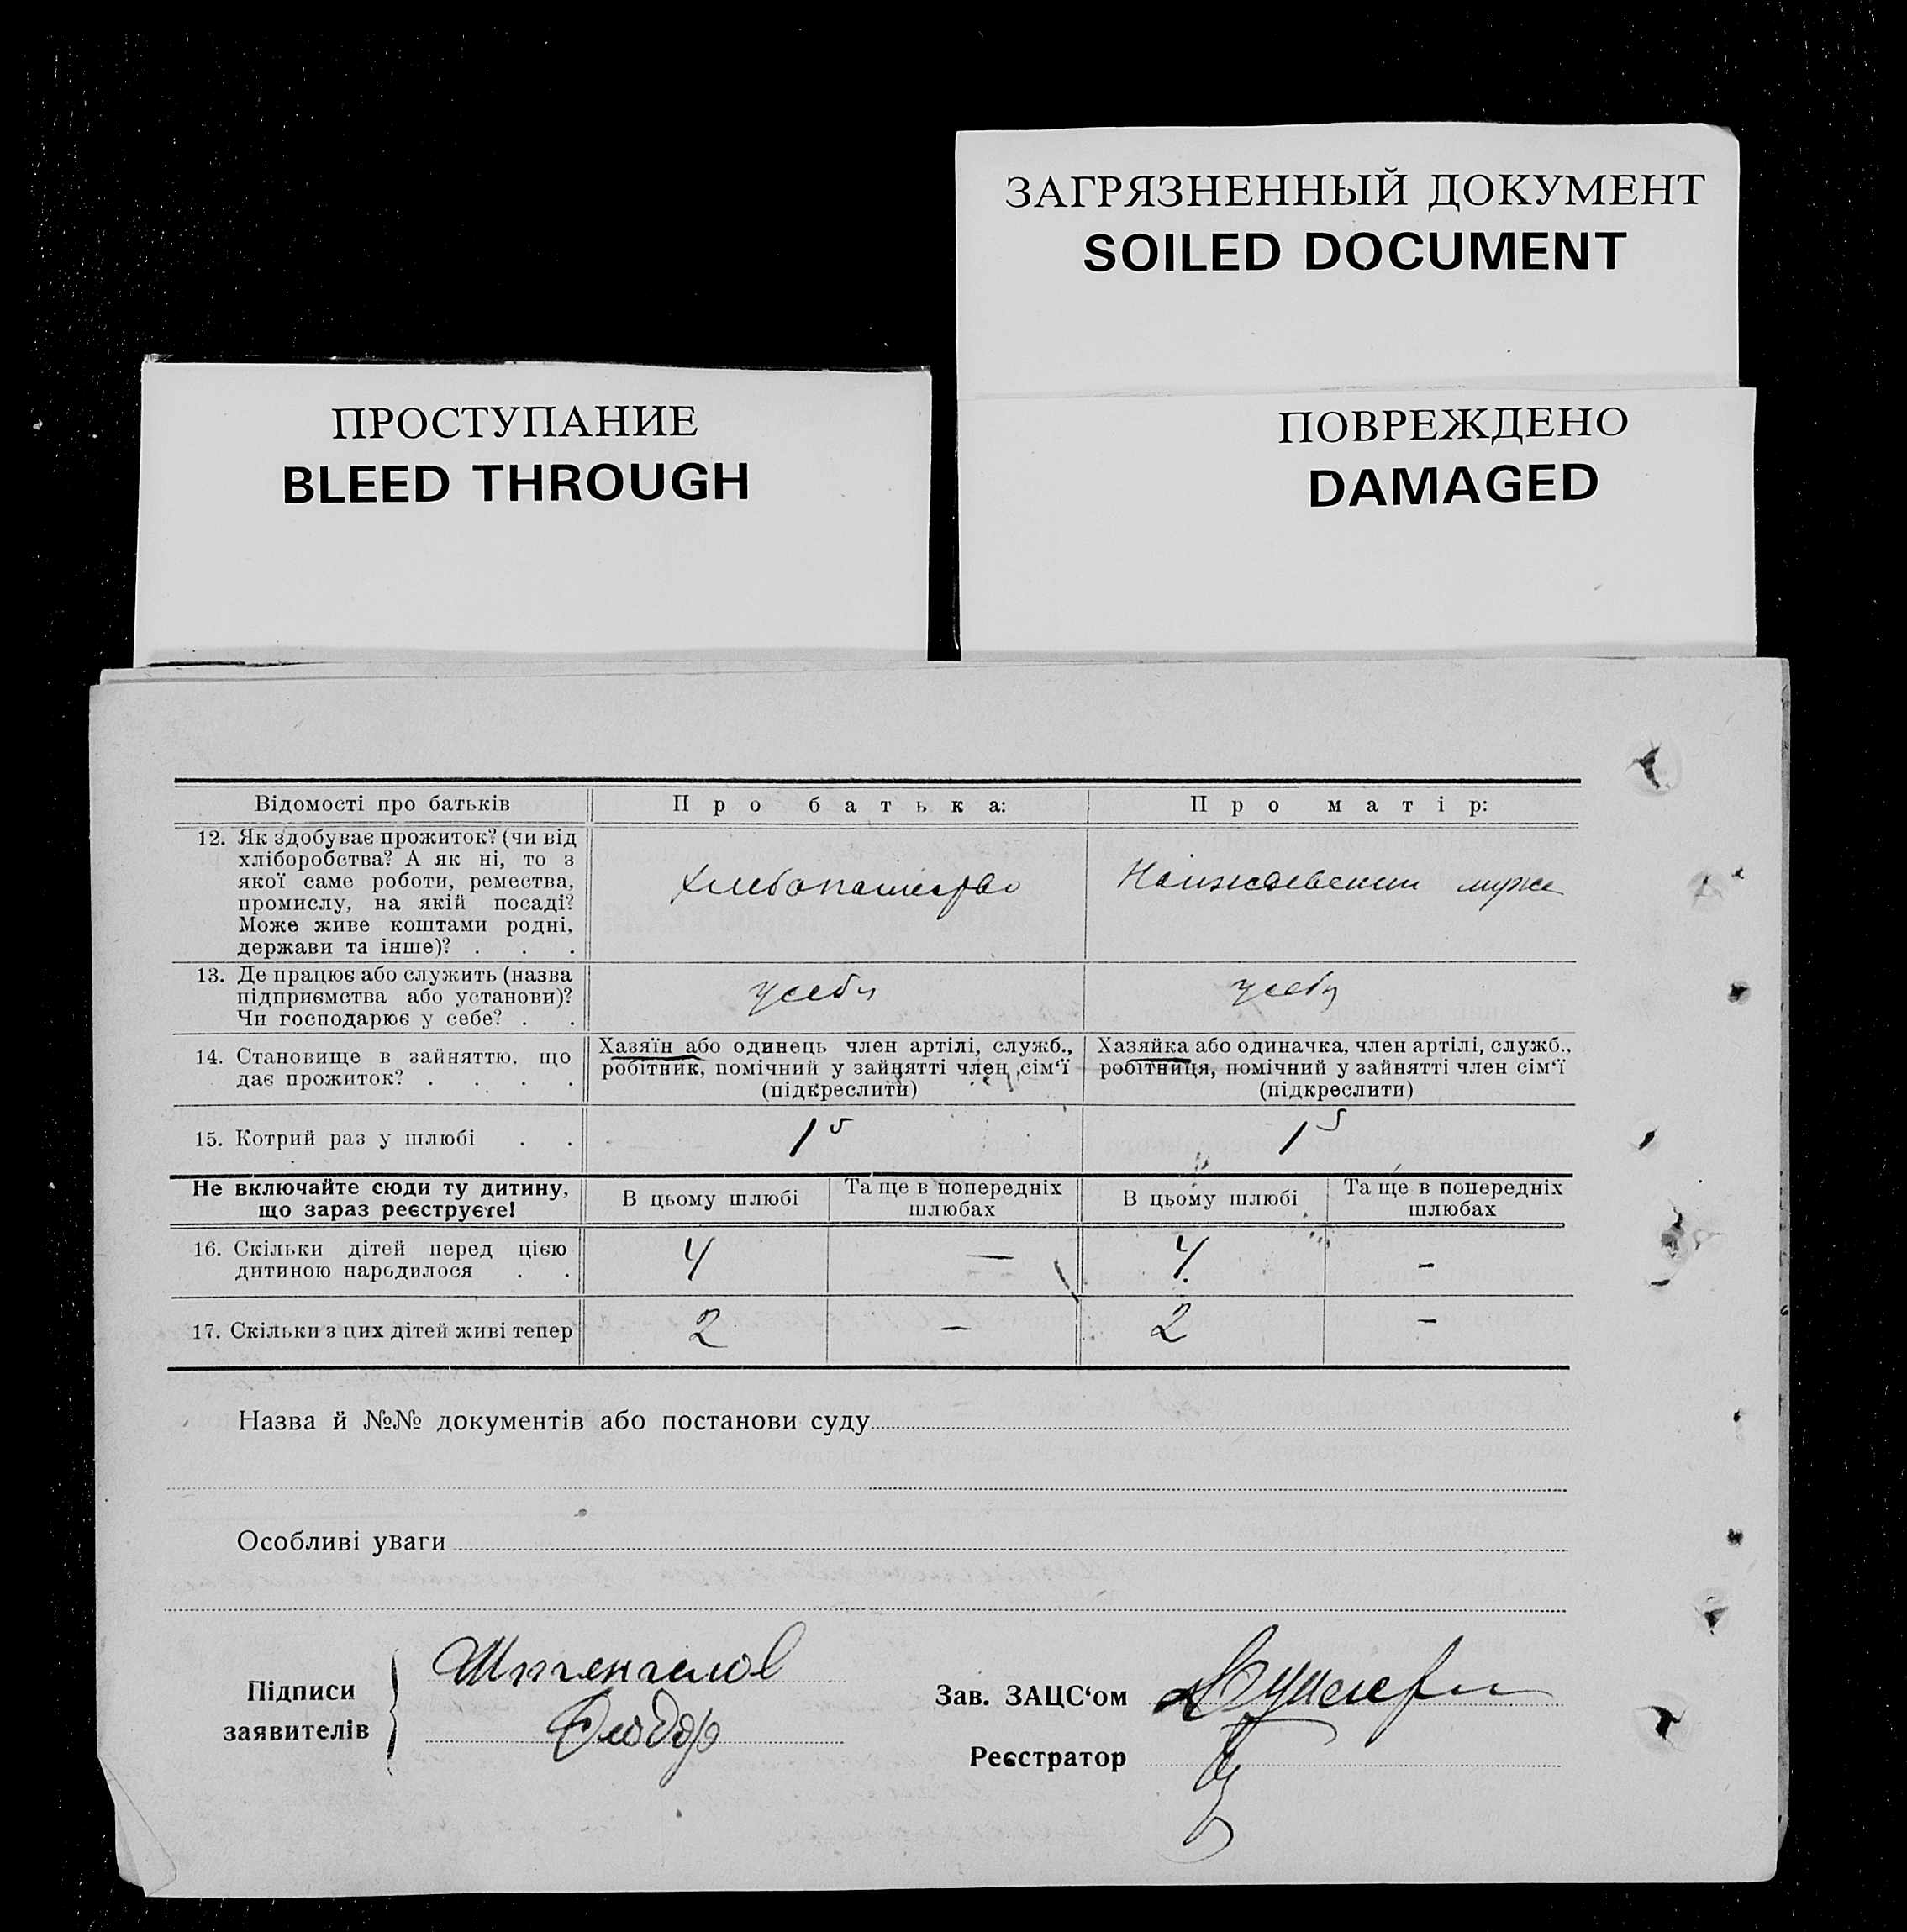 ЗАГРЯЗНЕННЫЙ ДОКУМЕНТ
SOILED DOCUMENT
ПРОСТУПАНИЕ
BLEED THROUGH
ПОВРЕЖДЕНО
DAMAGED
Відомості про батьків Про батька: Про матір:
12. Як здобуває прожиток? (чи від
хліборобства? А як ні, то з
якої саме роботи, ремества,
промислу, на якій посаді?
Може живе коштами родні,
держави та інше)? . . .
хлебопашество
13. Де працює або служить (назва
підприємства або установи)?
Чи господарює у себе? . .
у себя у себя
14. Становище в зайняттю, що
дає прожиток? . . . .
Хазяїн або одинець член артілі, служб.,
робітник, помічний у зайнятті член сім‘ї
(підкреслити)
Хазяйка або одиначка, член артілі, служб.,
робітниця, помічний у зайнятті член сім‘ї
(підкреслити)
15. Котрий раз у шлюбі . .
Не включайте сюди ту дитину,
що зараз реєструєте!
В цьому шлюбі
Та ще в попередніх
шлюбах
В цьому шлюбі
Та ще в попередніх
шлюбах
16. Скільки дітей перед цією
дитиною народилося . .
4 — 4 -
17. Скільки з цих дітей живі тепер 2 — 2 -
Назва й №№ документів або постанови суду
Особливі уваги
Підписи
заявителів
Зав. ЗАЦС‘ом
Реєстратор